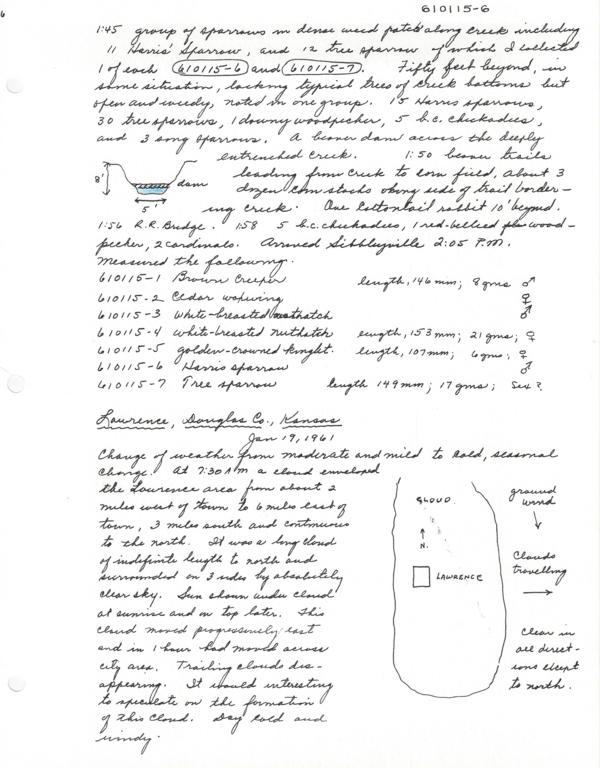 6
610115-6
1:45 group of sparrows in dense weed patch along creek including
11 Harris' Sparrow, and 12 tree sparrow of which I collected
1 of each 610115-6 and 610115-7. Fifty feet beyond, in
same situation, lacking typical trees of creek bottoms but
open and weedy, noted in one group. 15 Harris sparrows,
30 tree sparrows, 1 downy woodpecker, 5 b.c. chickadees,
and 3 song sparrows. A beaver dam across the deeply
entrenched creek. 1:50 beaver trails
8' dam leading from creek to corn field, about 3
dozen corn stacks along side of trail border-
5' ing creek. One Cottontail rabbit 10' beyond.
1:56 R.R. Bridge. 1:58 5 b.c. chickadees, 1 red-bellied wood-
pecker, 2 cardinals. Arrived Sibbleyville 2:05 P.M.
Measured the following.
610115-1 Brown Creeper length, 146 mm; 8 gms ♂
610115-2 Cedar waxwing ♀
610115-3 white-breasted nuthatch ♂
610115-4 white-breasted nuthatch length, 153 mm; 21 gms; ♀
610115-5 golden-crowned kinglet. length, 107 mm; 6 gms; ♀
610115-6 Harris sparrow ♂
610115-7 Tree sparrow length 149 mm; 17 gms; Sex?
Lawrence, Douglas Co., Kansas
Jan 19, 1961
Change of weather from moderate and mild to cold, seasonal
change. At 7:30 AM a cloud enveloped
the Lawrence area from about 2
miles west of town to 6 miles east of
town, 3 miles south and continuous
to the north. It was a long cloud
of indefinite length to north and
surrounded on 3 sides by absolutely
clear sky. Sun shown under cloud
at sunrise and on top later. This
cloud moved progressively east
and in 1 hour had moved across
city area. Trailing clouds dis-
appearing. It would interesting
to speculate on the formation
of this cloud. Day cold and
windy.
CLOUD
N.
LAWRENCE
ground
wind
Clouds
travelling
Clear in
all direct-
ions except
to north.